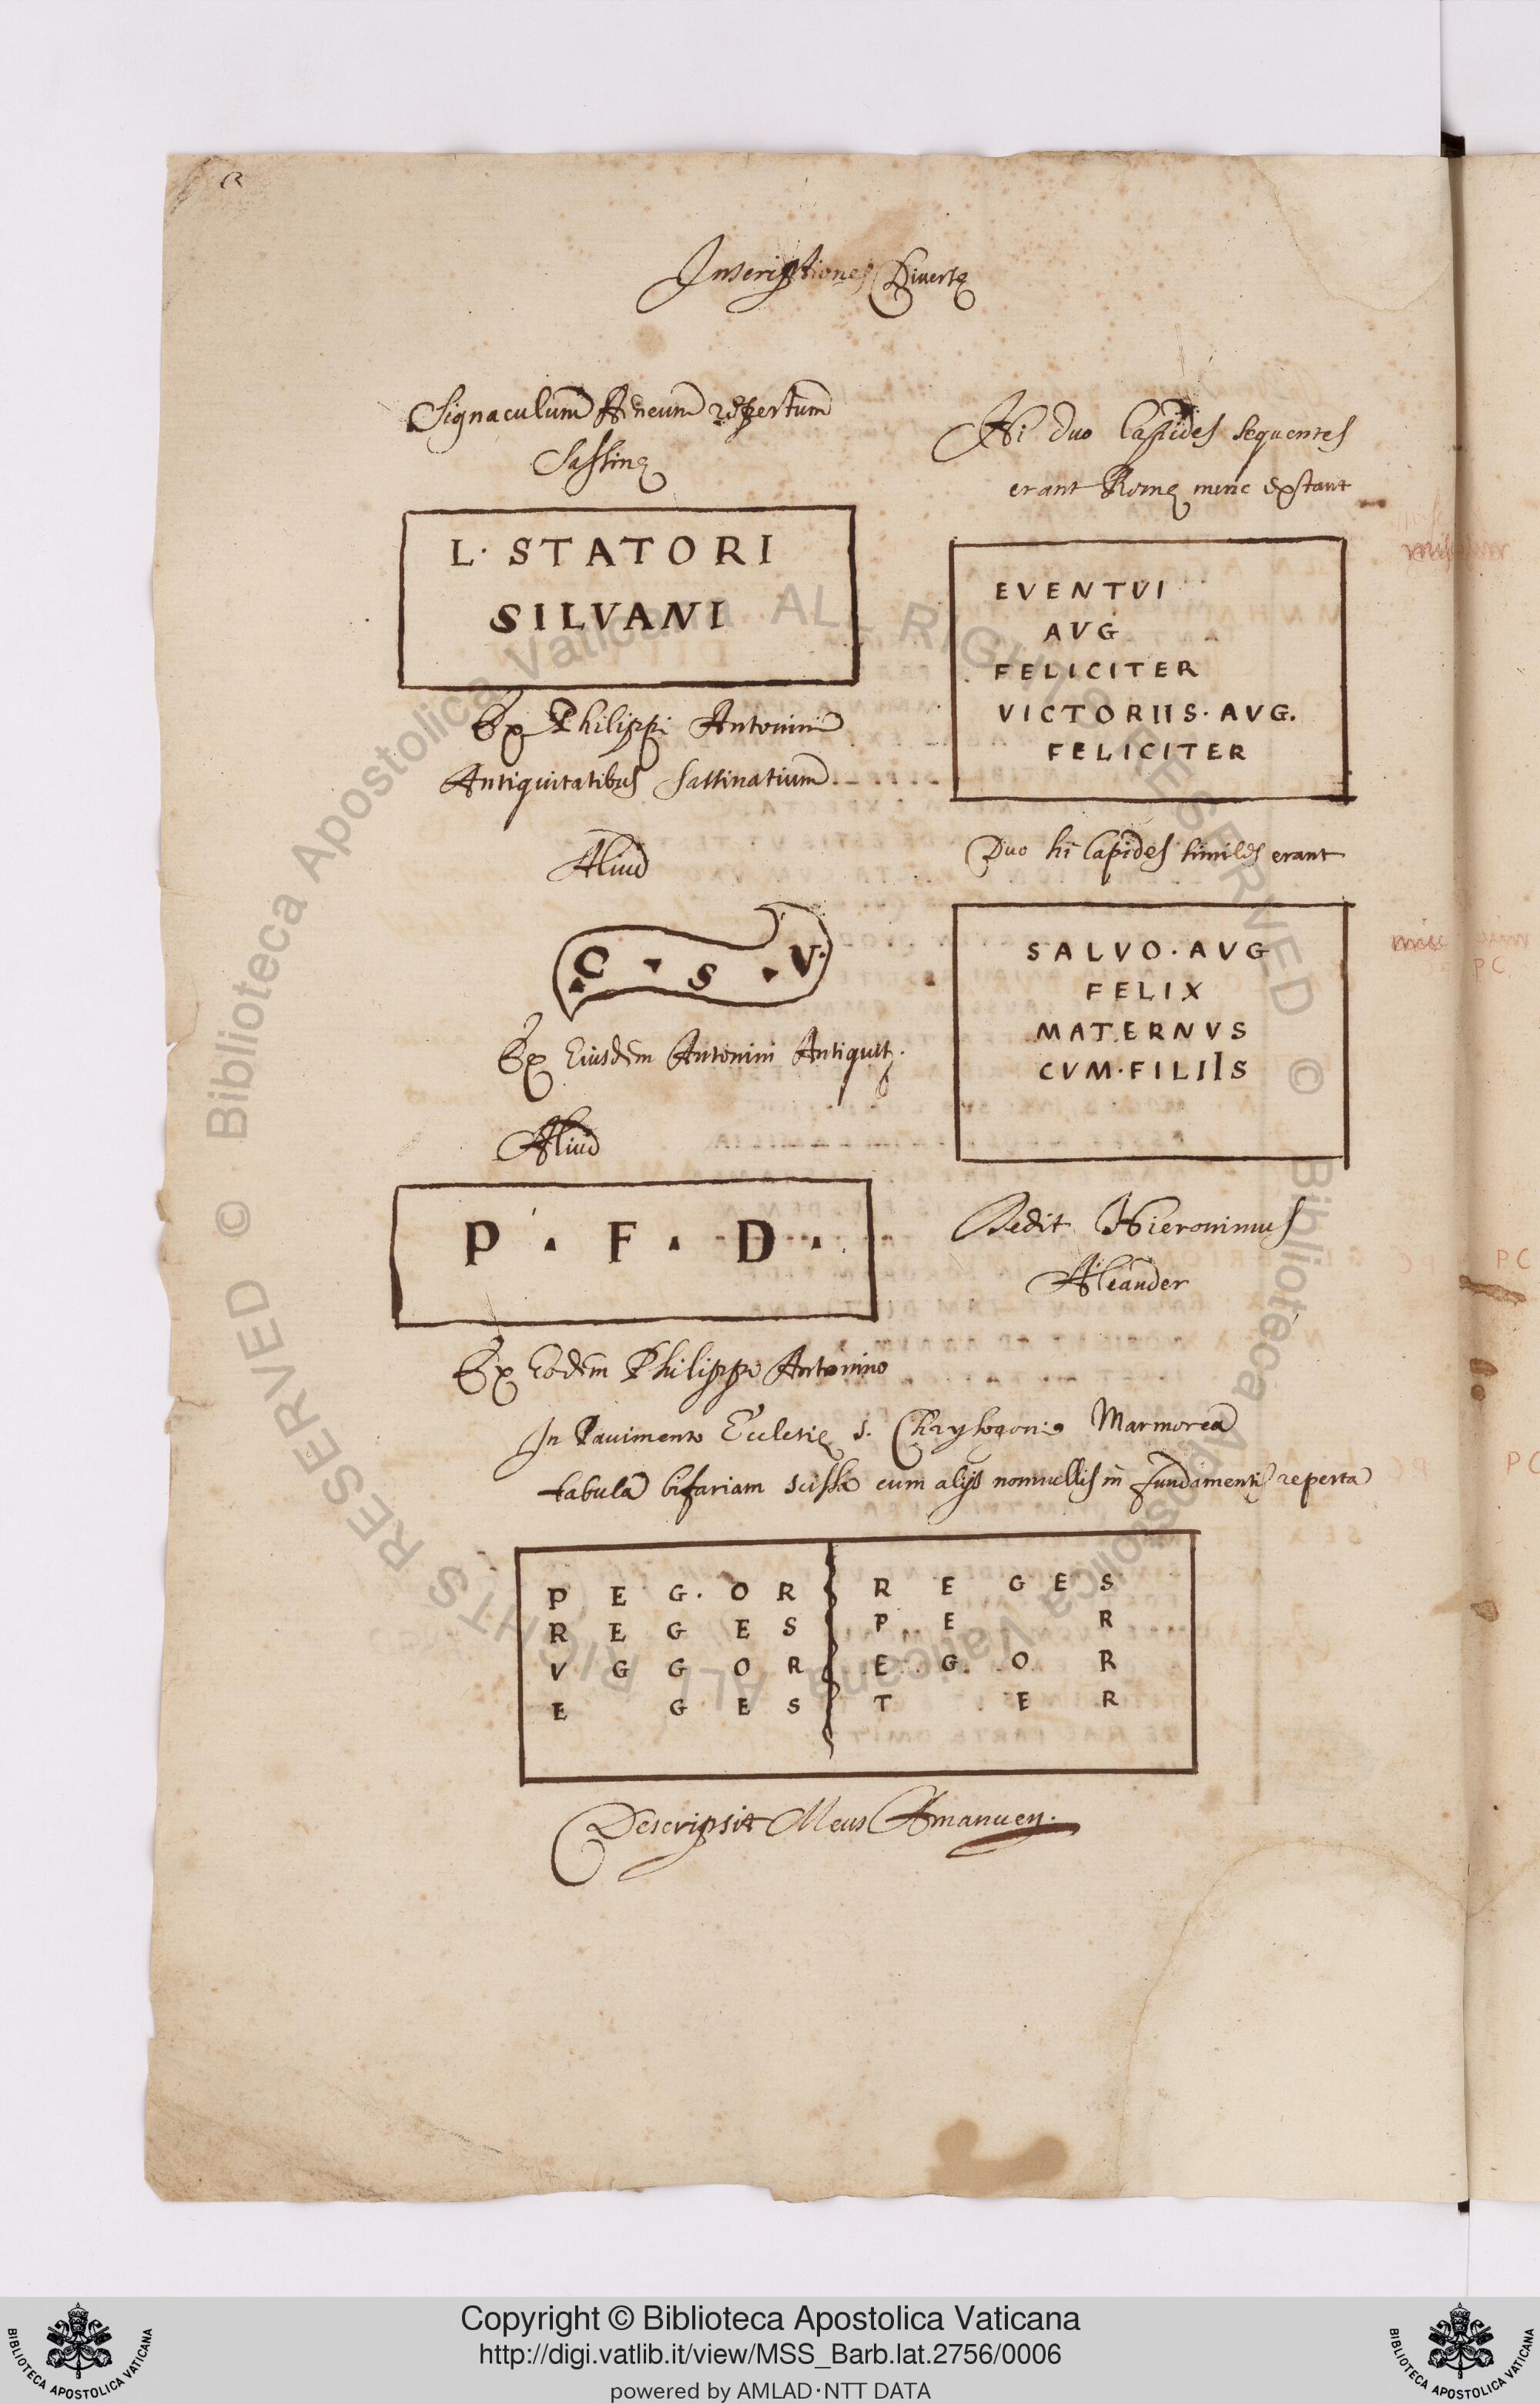 Inscriptiones Diversę
Signaculum Aeneum repertum
Sassinę
L· STATORI
SILVANI
Ex Philippi Antonini
Antiquitatibus Sassinatium
Aliud
C · S · V·
Ex Eiusdem Antonini Antiquit.
Aliud
P · F · D ·
Ex Eodem Philippo Antonino
Hi duo lapides sequentes
erant Romę nunc extant
EVENTVI
AVG
FELICITER
VICTORIIS·AVG.
FELICITER
Duo hi lapides similes erant
SALVO·AVG
FELIX
MATERNVS
CVM·FILIIS
Dedit Hieronimus
Aleander
In Pavimento Ecclesię S. Chrysogoni Marmorea
tabula bifariam scissa cum alijs nonnullis in fundamentis reperta
P E G· O R R E G E S
R E G E S P E R
V G G O R E G O R
E G E S T E R
Descripsit Meus Amanuen.
P C
P C
P C
© Biblioteca Apostolica Vaticana ALL RIGHTS RESERVED © Biblioteca Apostolica Vaticana ALL RIGHTS RESERVED
Copyright © Biblioteca Apostolica Vaticana
http://digi.vatlib.it/view/MSS_Barb.lat.2756/0006
powered by AMLAD·NTT DATA
BIBLIOTECA APOSTOLICA VATICANA
BIBLIOTECA APOSTOLICA VATICANA